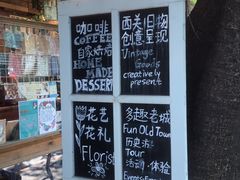 咖啡
COFFEE
自家烘焙
HOME
MADE
DESSERT
西关旧物
创意呈现
Vintage
Goods
creatively
present
花艺
花礼
Florist
多趣老城
Fun Old Town
历史游
Tour
活动·体验